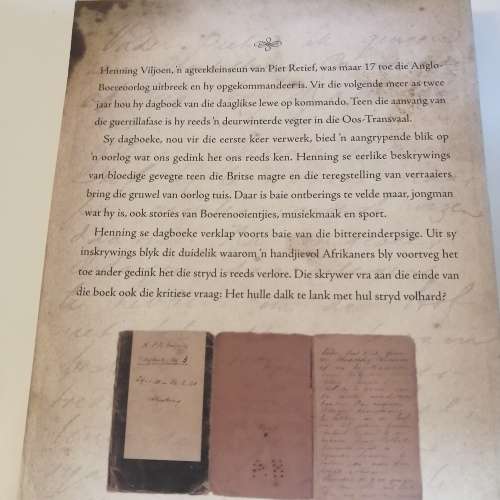 Henning Viljoen, 'n agterkleinseun van Piet Retief, was maar 17 toe die Anglo-
Boereoorlog uitbreek en hy opgekommandeer is. Vir die volgende meer as twee
jaar hou hy dagboek van die daaglikse lewe op kommando. Teen die aanvang van
die guerrillafase is hy reeds 'n deurwinterde vegter in die Oos-Transvaal.
Sy dagboeke, nou vir die eerste keer verwerk, bied 'n aangrypende blik op
'n oorlog wat ons gedink het ons reeds ken. Henning se eerlike beskrywings
van bloedige gevegte teen die Britse magte en die teregstelling van verraaiers
bring die gruwel van oorlog tuis. Daar is baie ontberings te velde maar, jongman
wat hy is, ook stories van Boerenooientjies, musiekmaak en sport.
Henning se dagboeke verklap voorts baie van die bittereinderpsige. Uit sy
inskrywings blyk dit duidelik waarom 'n handjievol Afrikaners bly voortveg het
toe ander gedink het die stryd is reeds verlore. Die skrywer vra aan die einde van
die boek ook die kritiese vraag: Het hulle dalk te lank met hul stryd volhard?